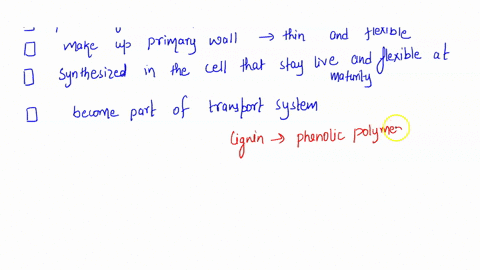 make up primary wall → thin and flexible
synthesized in the cell that stay live and flexible at
maturity
become part of transport system
lignin → phenolic polymer